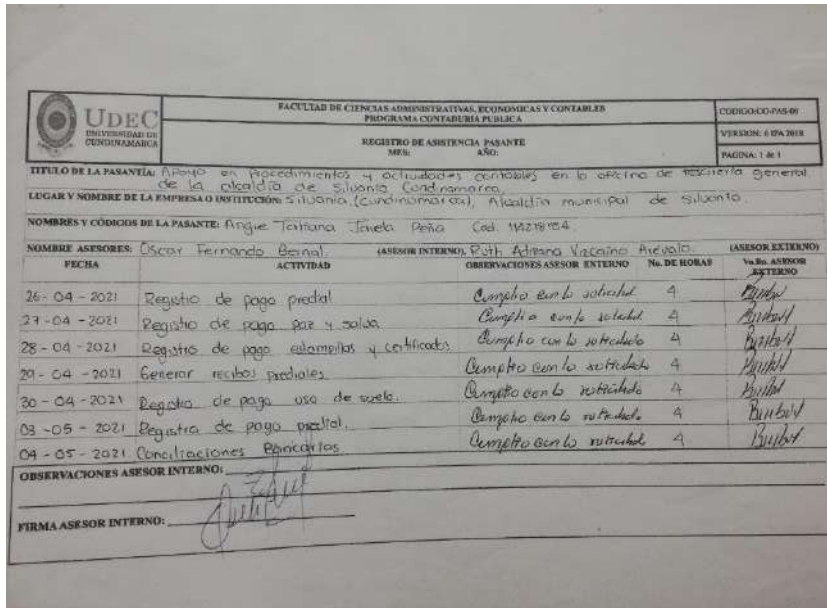 UDEC
UNIVERSIDAD DE
CUNDINAMARCA
FACULTAD DE CIENCIAS ADMINISTRATIVAS, ECONOMICAS Y CONTABLES
PROGRAMA CONTADURIA PUBLICA
REGISTRO DE ASISTENCIA PASANTE
MES: AÑO:
CODIGO:CO-PAS-09
VERSION: 6 IPA 2018
PAGINA: 1 de 1
TITULO DE LA PASANTÍA: Apoyo en Procedimientos y actividades contables en la oficina de tesorería general
de la alcaldía de Silvania Cundinamarca.
LUGAR Y NOMBRE DE LA EMPRESA O INSTITUCIÓN: Silvania (Cundinamarca), Alcaldía municipal de silvania.
NOMBRES Y CÓDIGOS DE LA PASANTE: Angie Tatiana Peña Cod.
NOMBRE ASESORES: Oscar Fernando Bernal. (ASESOR INTERNO), Ruth Adriana Vizcaino Arévalo. (ASESOR EXTERNO)
FECHA ACTIVIDAD OBSERVACIONES ASESOR EXTERNO No. DE HORAS Vo.Bo. ASESOR EXTERNO
26-04-2021 Registro de pago predial Cumplio con lo solicitado 4
27-04-2021 Registro de pago paz y salvo Cumplio con lo solicitado 4
28-04-2021 Registro de pago estampillas y certificados Cumplio con lo solicitado 4
29-04-2021 Generar recibos prediales Cumplio con lo solicitado 4
30-04-2021 Registro de pago uso de suelo. Cumplio con lo solicitado 4
03-05-2021 Registro de pago predial. Cumplio con lo solicitado 4
04-05-2021 Conciliaciones Bancarias Cumplio con lo solicitado 4
OBSERVACIONES ASESOR INTERNO:
FIRMA ASESOR INTERNO: